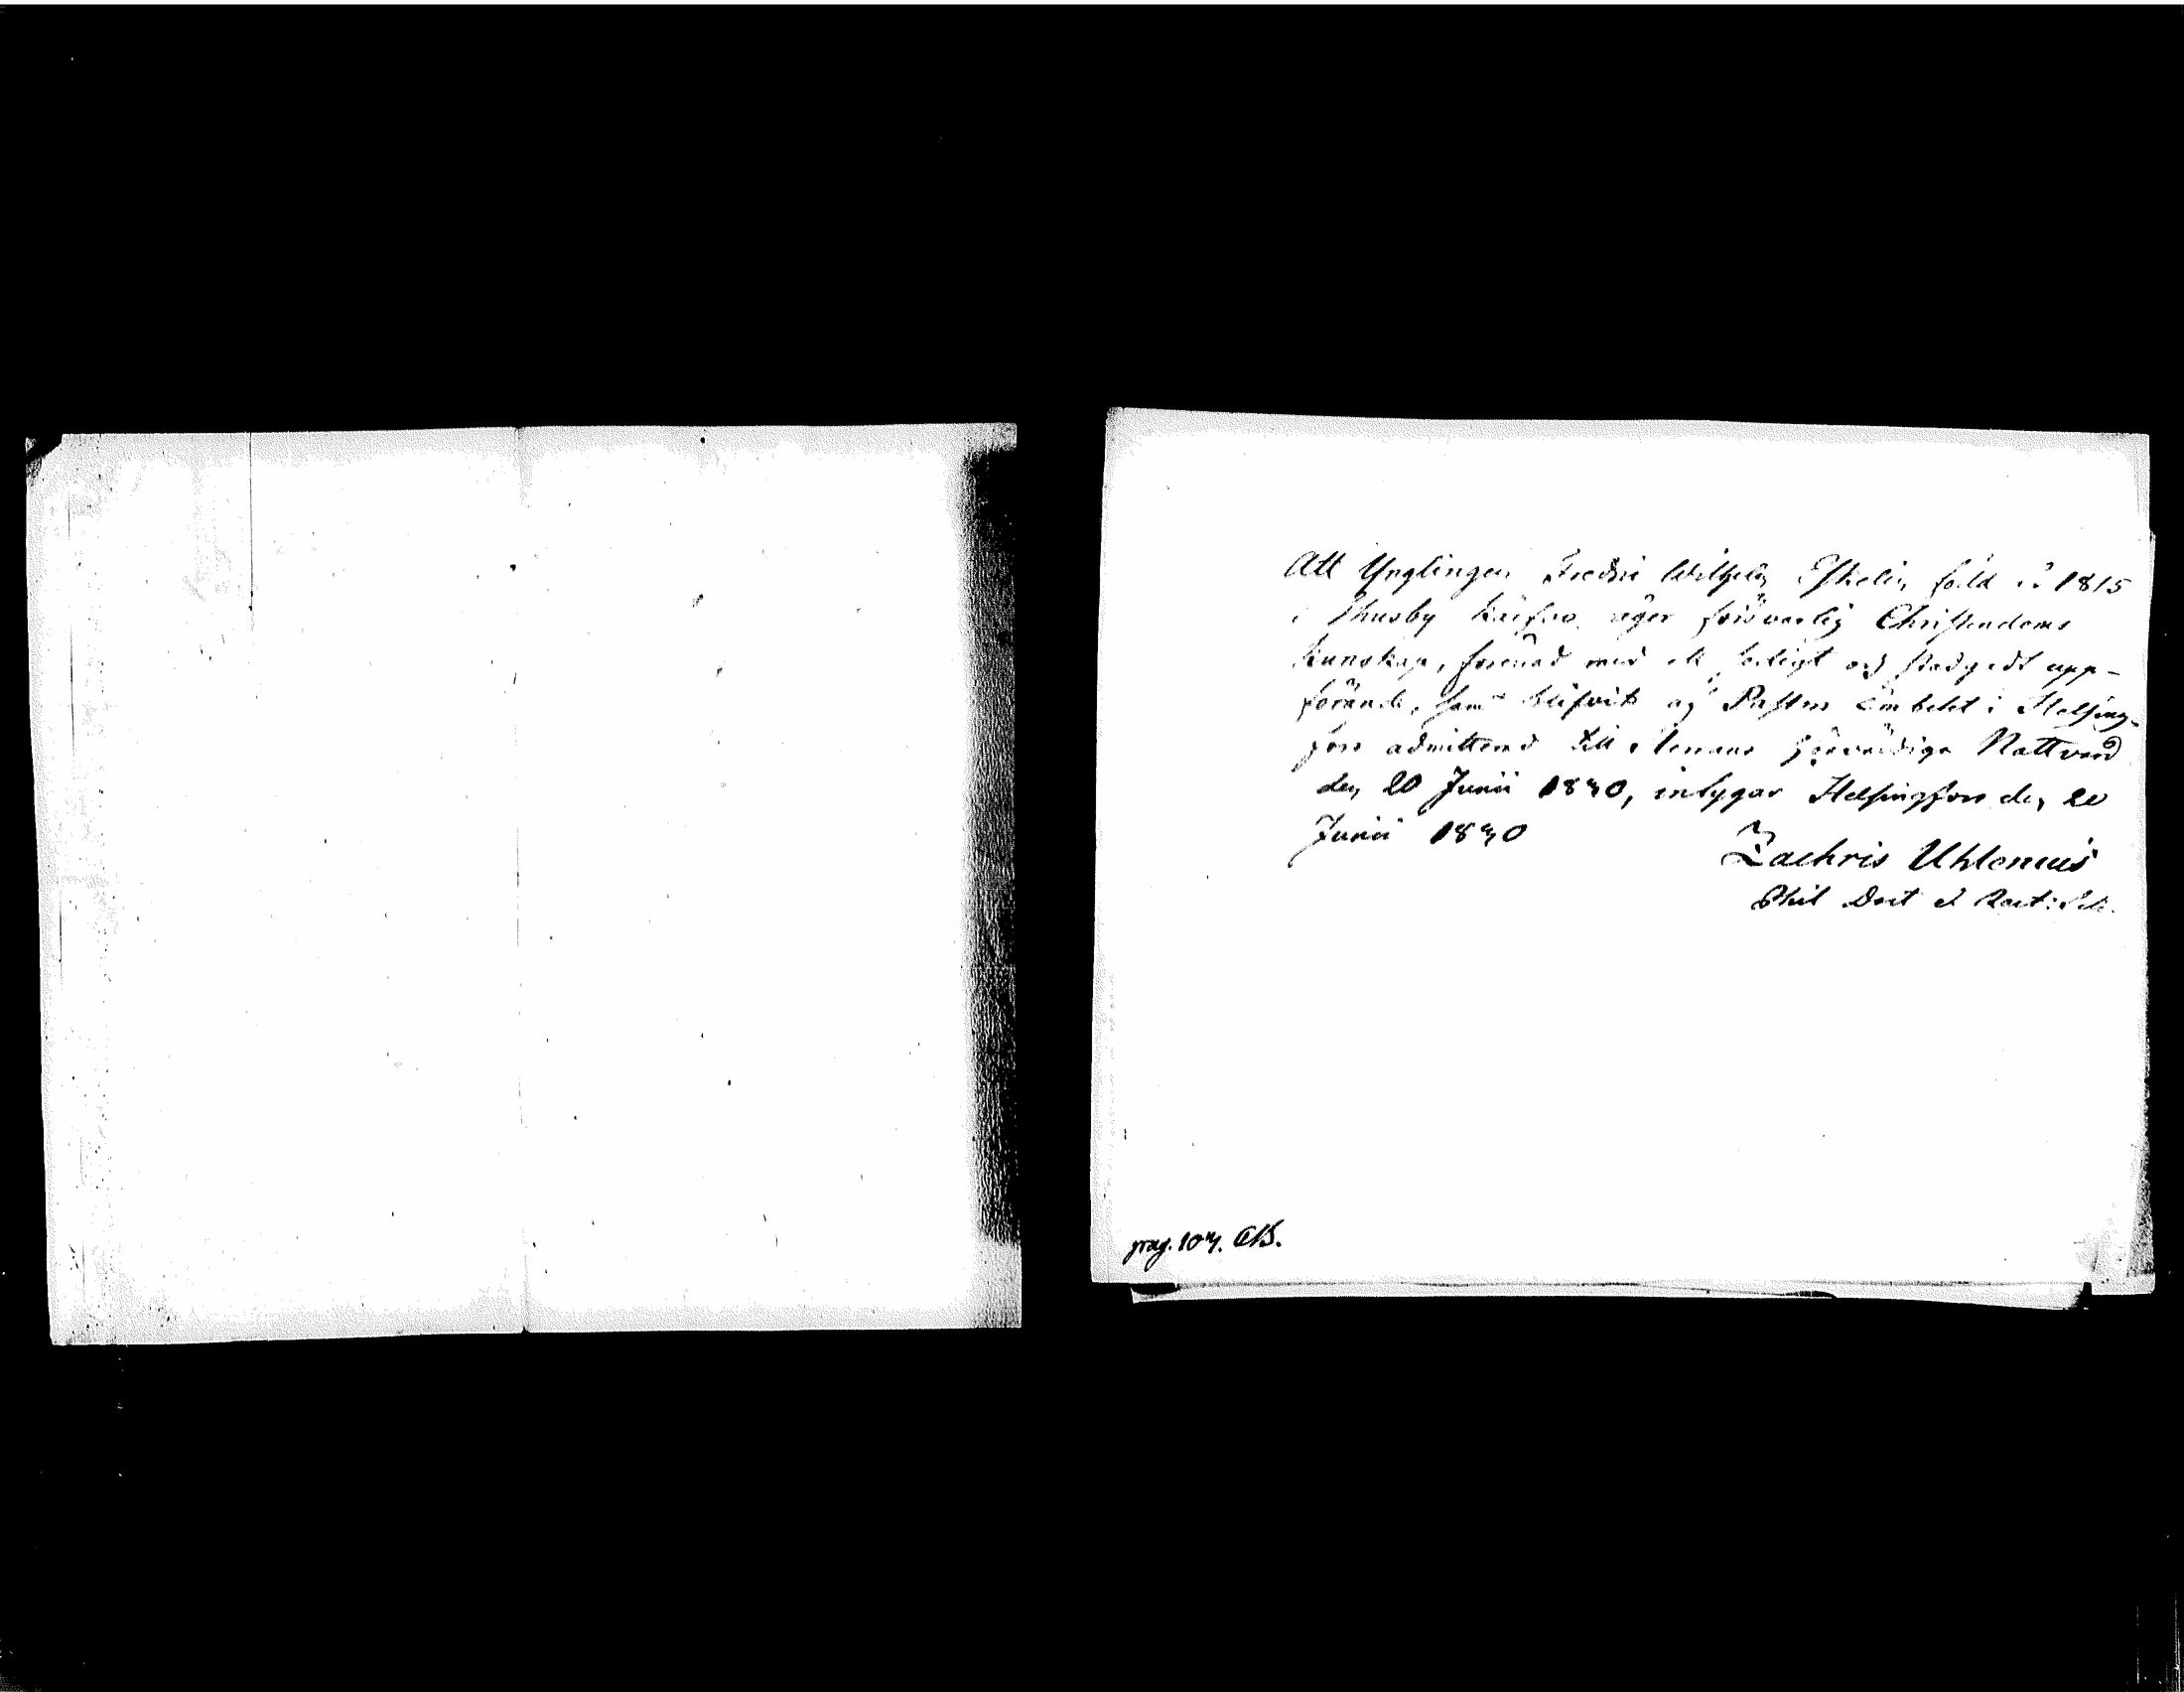 Att Ynglingen Fredric Wilhelm Eskelin född år 1815
i Thusby kärfva äger försvarlig Christendoms
kunskap, förenad med ett sedigt och stadgadt upp-
förande, samt blifvit af Pastors Embetet i Helsing-
fors admitterad till Herrans högvärdiga Nattvard
den 20 Junii 1830, intygar Helsingfors den 20
Junii 1830
Zachris Uhlenius
Phil Doct et
pag. 104.